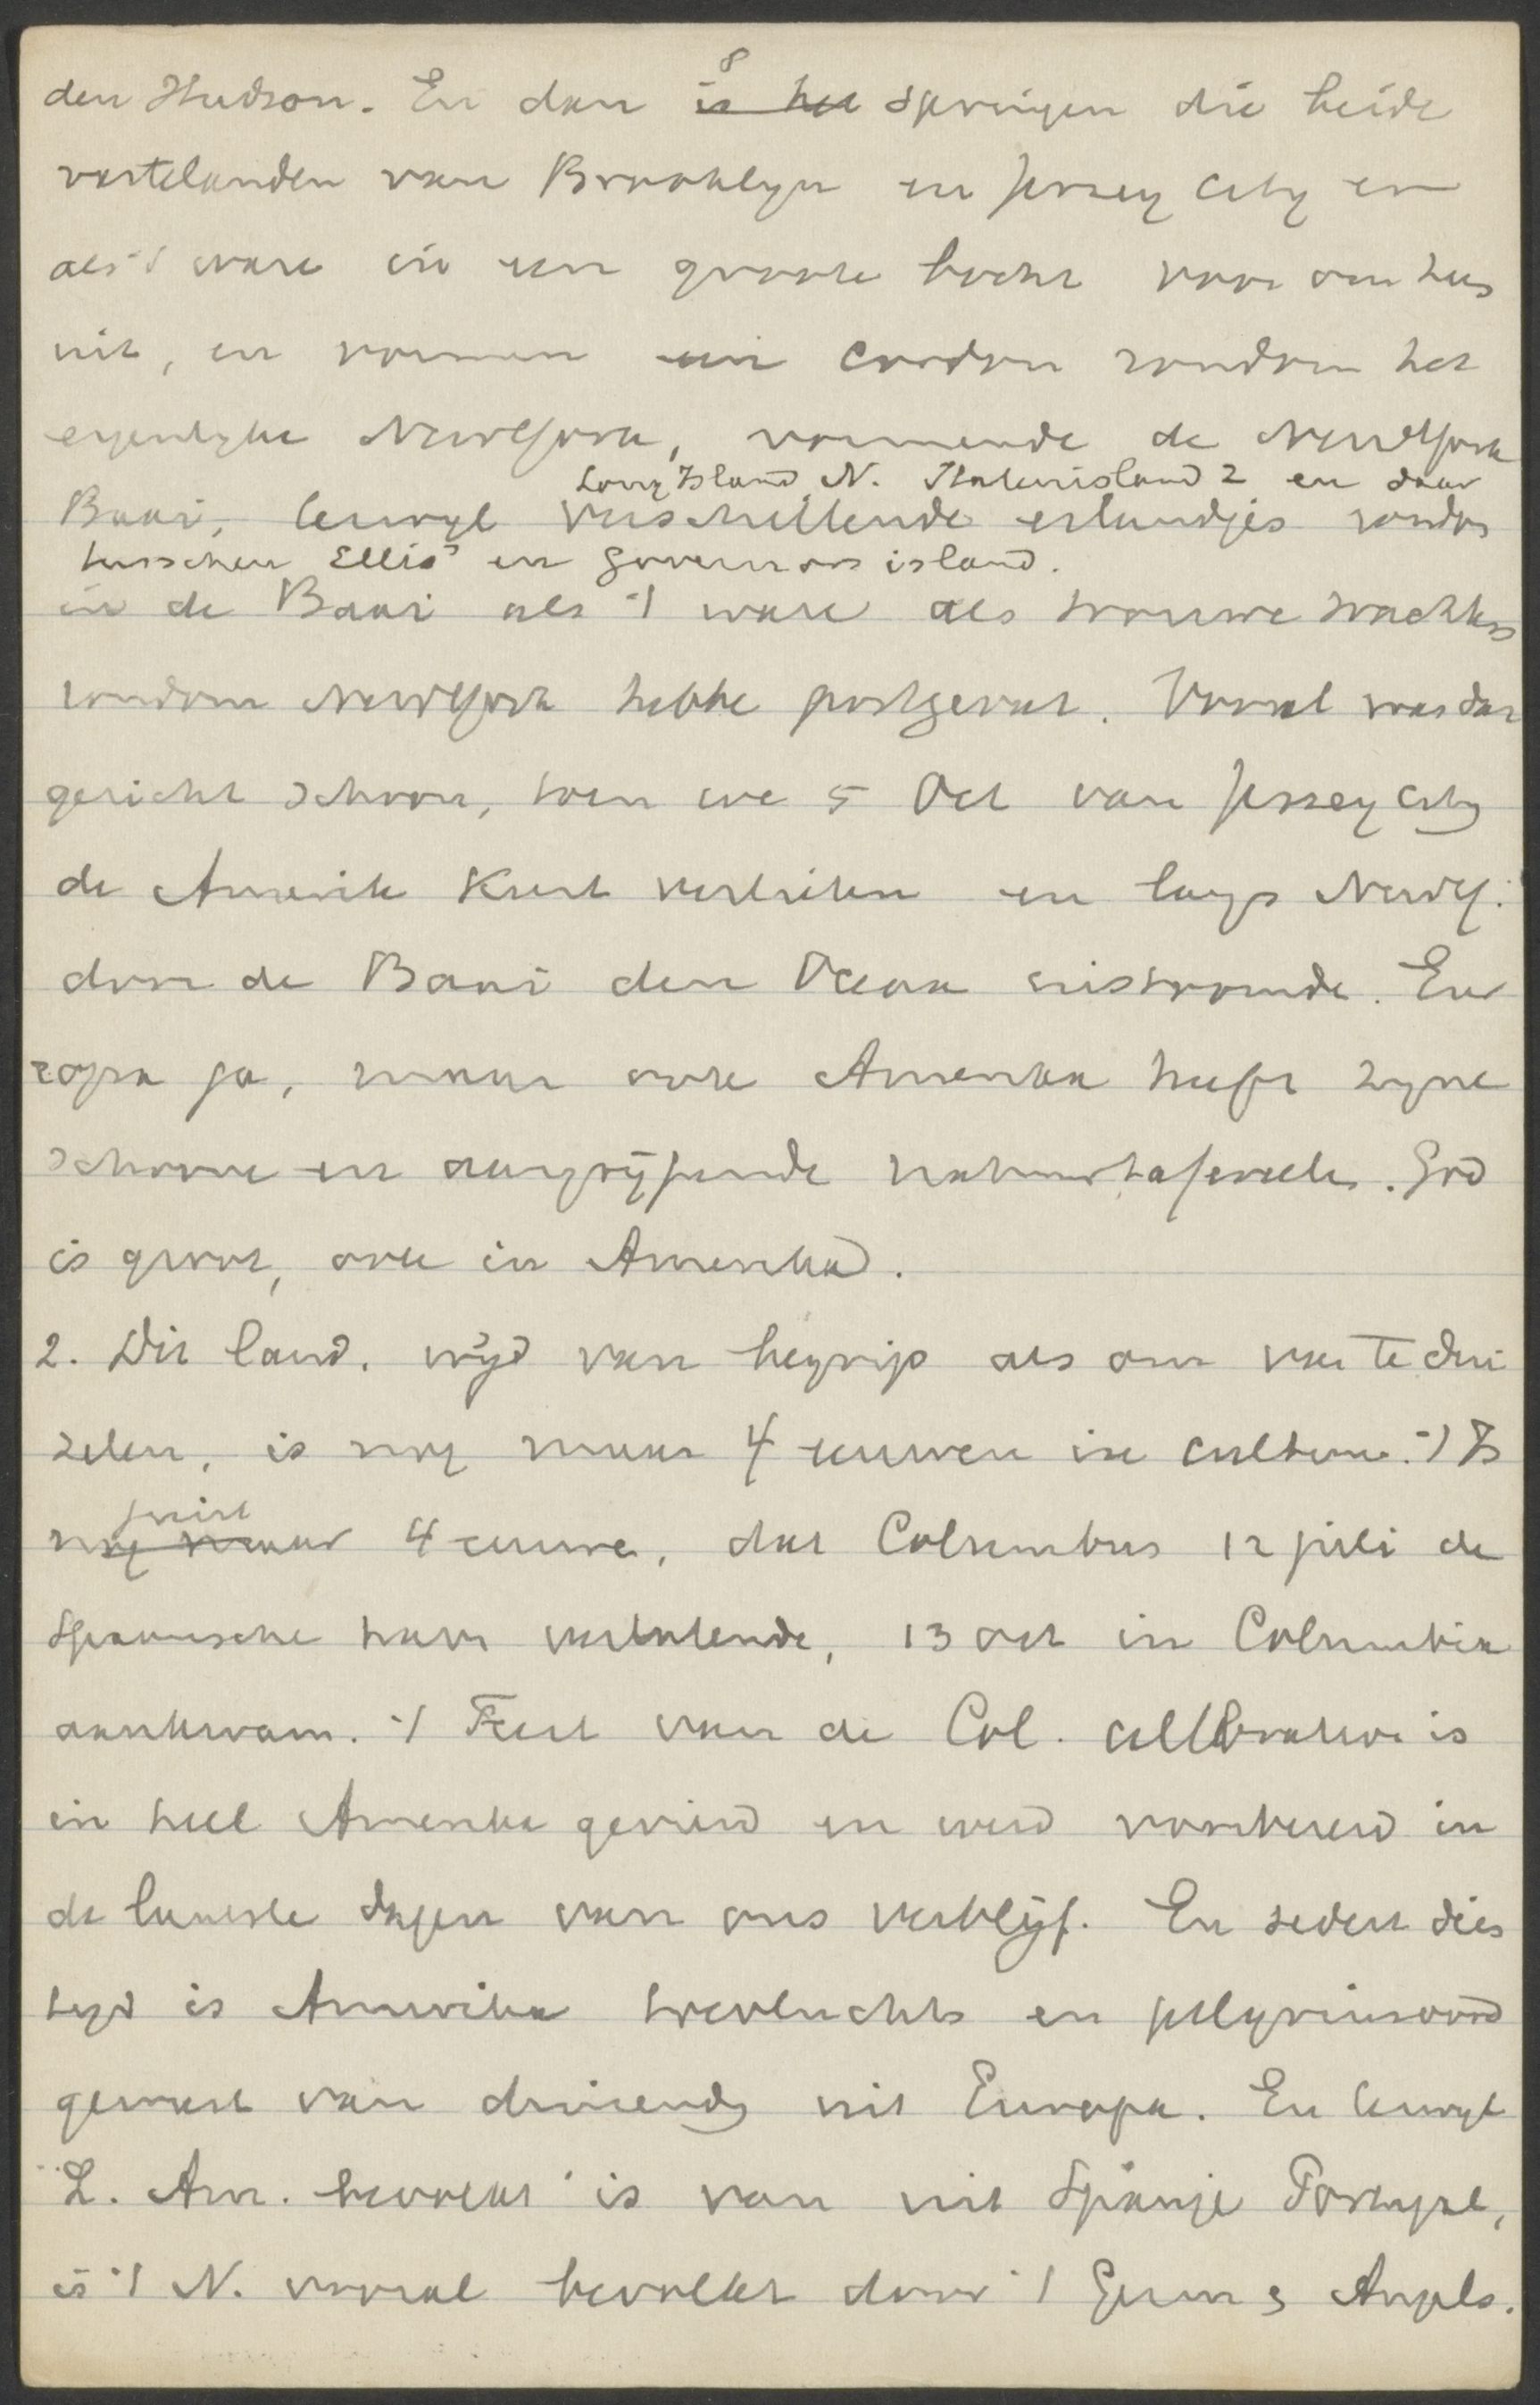 8
den Hudson. En dan is het springen die beide
vastelanden van Brooklyn en Jersey City er
als 't ware in een groote bocht voor om hus
uit, en vormen een cordon rondom het
eigenlyke NewYork, vormende de NewYork
Long Island N. Statenisland Z en daar
Baai, terwyl verschillende eilandjes rondos
tusschen Ellis en Governors island.
in de Baai als 't ware als trouwe wachters
rondom NewYork hebbe postgevat. Vooral was dat
gezicht schoon, toen we 5 Oct van Jersey City
de Amerik Kust verlieten en langs NewY.
door de Baai den Oceaan uitstoomde. Eu
ropa ja, maar ook Amerika heeft zyne
schoone en aangrijpende natuurtafereelen. God
is groot, ook in Amerika.
2. Dit land, wijd van begrip als om van te dui
zelen, is nog maar 4 eeuwen in cultuur. 't Is
juist
nog maar 4 eeuwe, dat Columbus 12 juli de
Spaansche haven verlatende, 13 oct in Columbia
aankwam. 't Feest van de Col. cellbration is
in heel Amerika gevierd en werd voorbereid in
de laatste dagen van ons verblijf. En sedert dies
tyd is Amerika toevluchts en pelgrimsoord
geweest van duizendg uit Europa. En terwyl
Z. Am. bevolkt is van uit Spanje Portugal,
is 't N. vooral bevolkt door 't Germ & Angels.